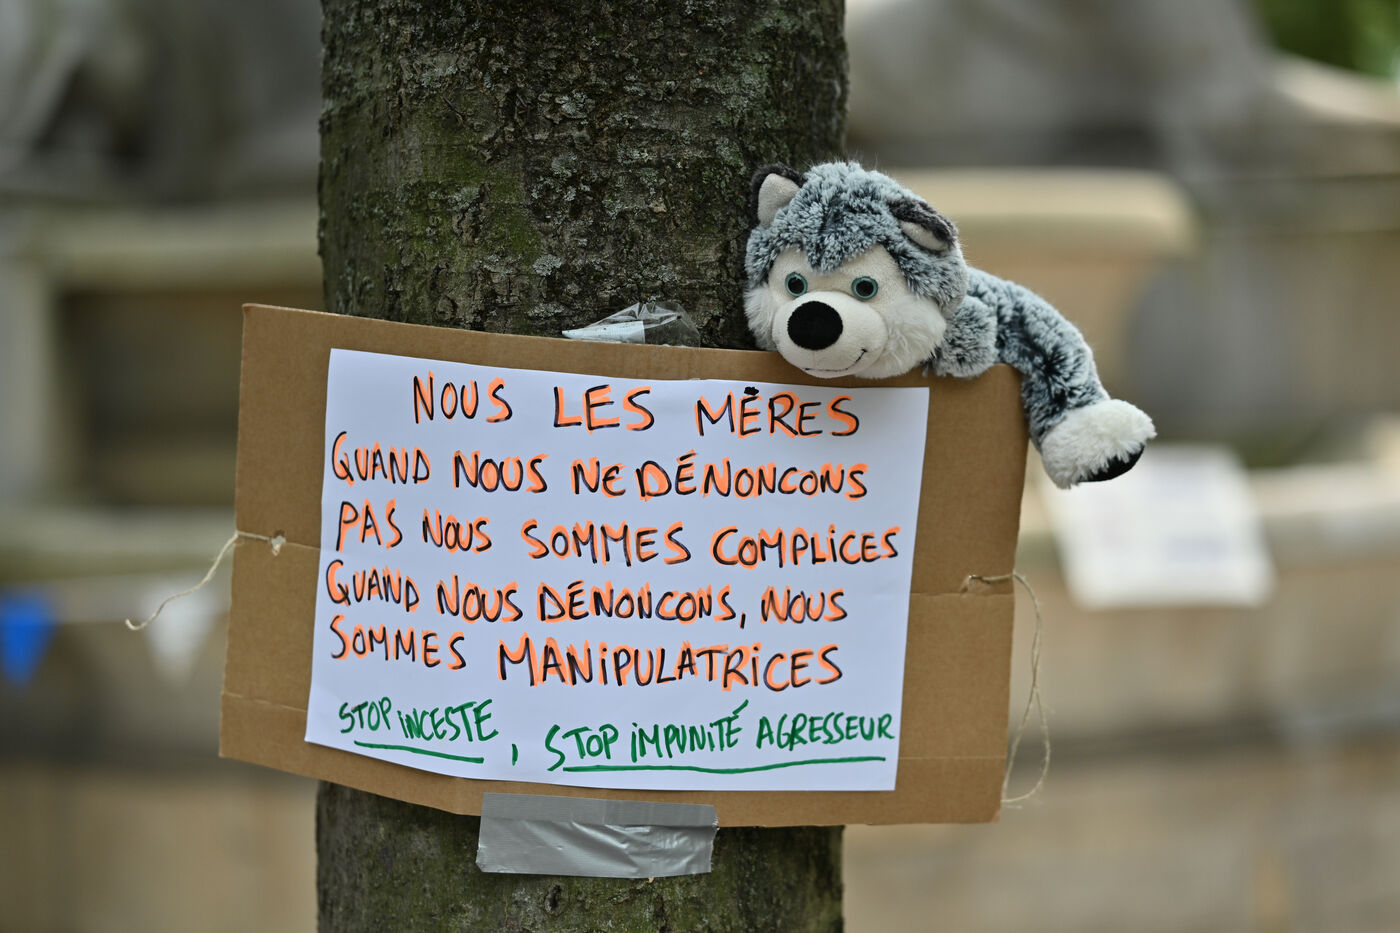 NOUS LES MÈRES
QUAND NOUS NE DÉNONCONS
PAS NOUS SOMMES COMPLICES
QUAND NOUS DÉNONCONS, NOUS
SOMMES MANIPULATRICES
STOP INCESTE, STOP IMPUNITÉ AGRESSEUR